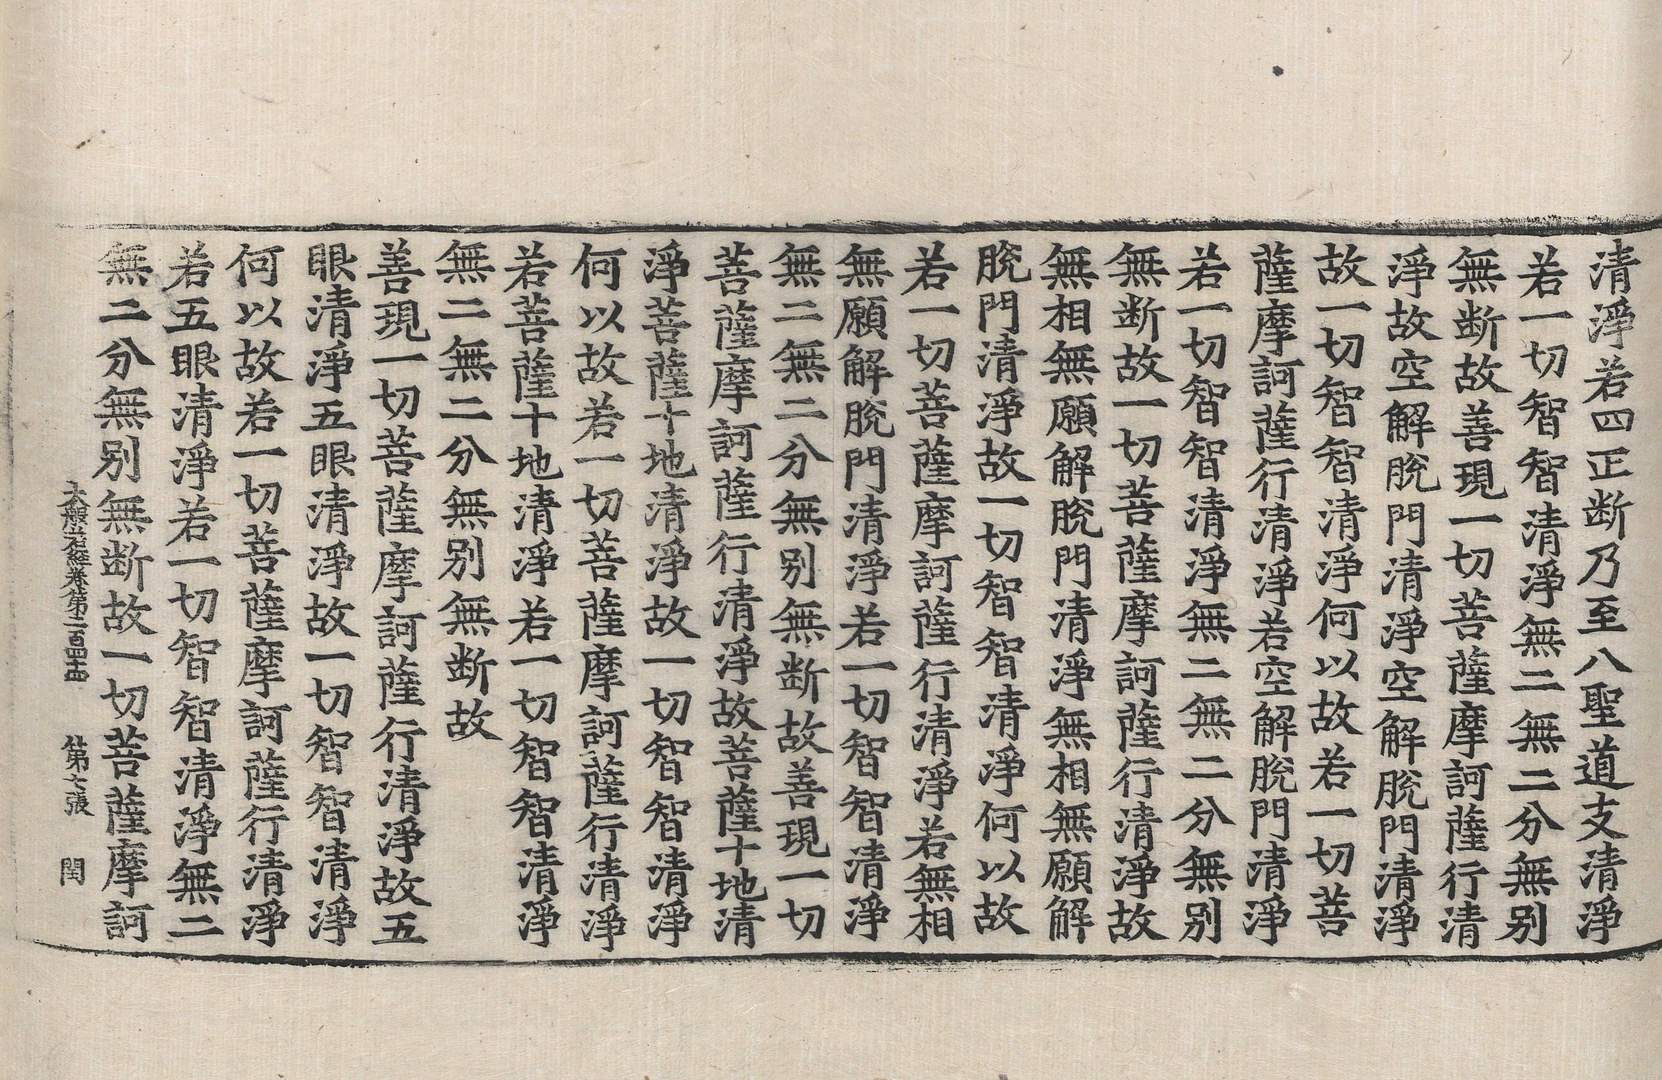 清淨若四正断乃至八聖道支清淨
若一切智智清淨無二無二分無别
無断故善現一切菩薩摩訶薩行清
淨故空解脫門清淨空解脫門清淨
故一切智智清淨何以故若一切菩
薩摩訶薩行清淨若空解脫門清淨
若一切智智清淨無二無二分無别
無断故一切菩薩摩訶薩行清淨故
無相無願解脫門清淨無相無願解
脫門清淨故一切智智清淨何以故
若一切菩薩摩訶薩行清淨若無相
無願解脫門清淨若一切智智清淨
無二無二分無别無断故善現一切
菩薩摩訶薩行清淨故菩薩十地清
淨菩薩十地清淨故一切智智清淨
何以故若一切菩薩摩訶薩行清淨
若菩薩十地清淨若一切智智清淨
無二無二分無别無断故
善現一切菩薩摩訶薩行清淨故五
眼清淨五眼清淨故一切智智清淨
何以故若一切菩薩摩訶薩行清淨
若五眼清淨若一切智智清淨無二
無二分無别無断故一切菩薩摩訶
大般若經卷第二百四十五 第七張 閏